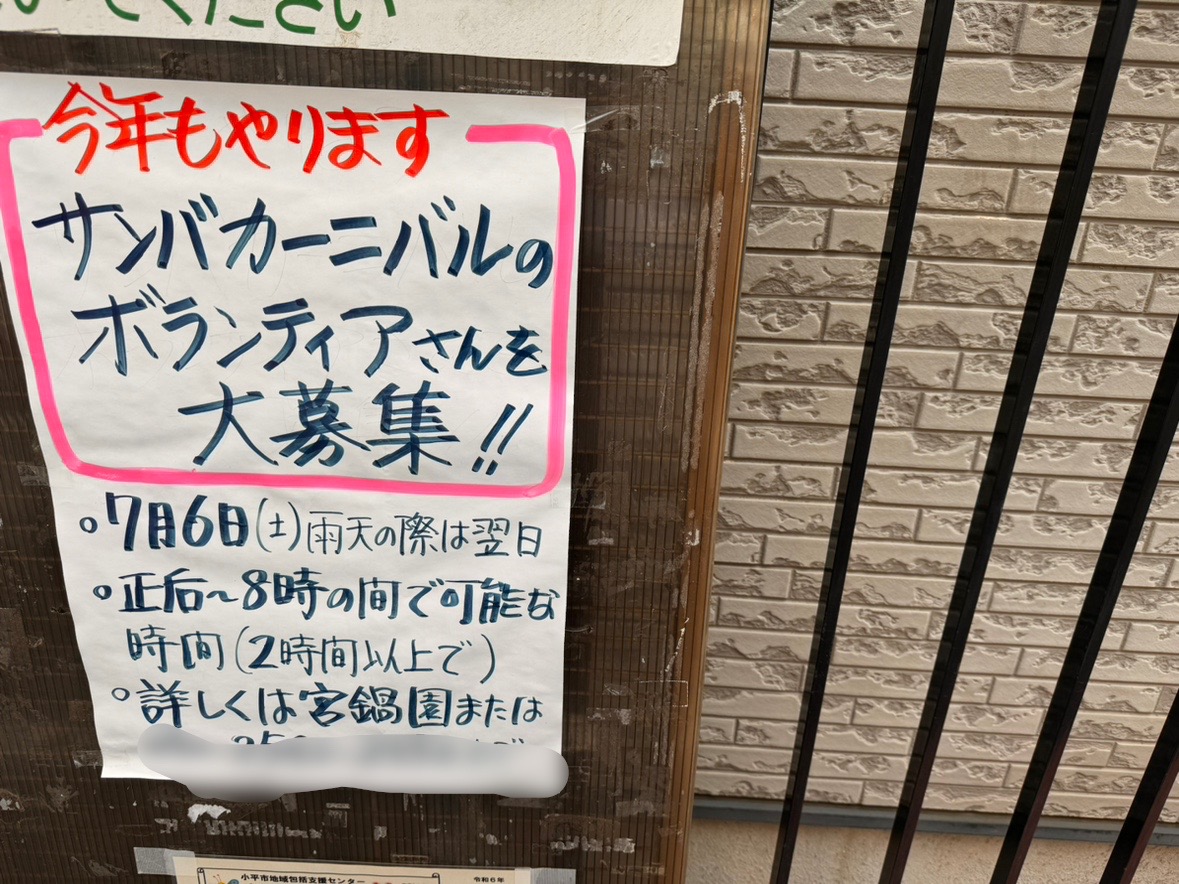 いてください
今年もやります
サンバカーニバルの
ボランティアさんを
大募集!!
○7月6日(土)雨天の際は翌日
○正后~8時の間で可能な
時間(2時間以上で)
○詳しくは宮鍋園または
小平市地域包括支援センター
令和6年